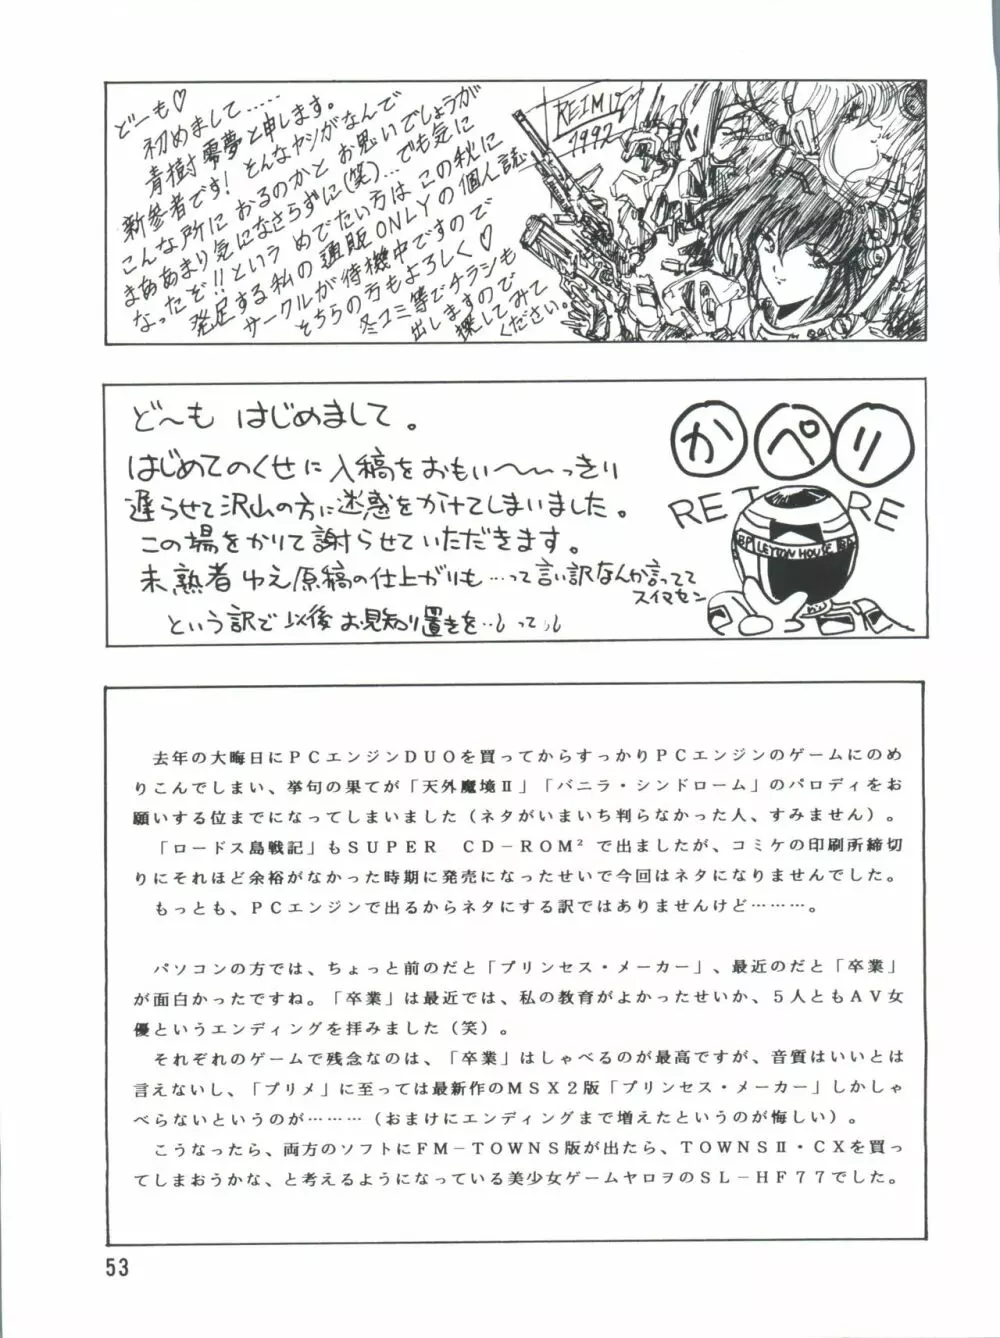 どーも♡
初めまして……
青樹零夢と申します。
新参者です! とんなヤツがなんで
こんな所におるのかとお思いでしょうが
まああまり気になさらずに(笑)… でも気に
なったぞ!! というめでたい方はこの秋に
発足する私の通販ONLYの個人誌
サークルが待機中ですので
そちらの方もよろしく♡
冬コミ等でチラシも
出しますので
探してみて
ください。
REIM
1992
ど〜も はじめまして。
はじめてのくせに入稿をおもい〜〜っきり
遅らせて沢山の方に迷惑をかけてしまいました。
この場をかりて謝らせていただきます。
未熟者ゆえ原稿の仕上がりも…って言い訳なんか言ってて
スイマセン
という訳で以後お見知り置きを…って
かぺり
RETIRE
BP LEYTON HOUSE BP
去年の大晦日にPCエンジンDUOを買ってからすっかりPCエンジンのゲームにのめ
りこんでしまい、挙句の果てが「天外魔境Ⅱ」「バニラ・シンドローム」のパロディをお
願いする位までになってしまいました(ネタがいまいち判らなかった人、すみません)。
「ロードス島戦記」もSUPER CD−ROM²で出ましたが、コミケの印刷所締切
りにそれほど余裕がなかった時期に発売になったせいで今回はネタになりませんでした。
もっとも、PCエンジンで出るからネタにする訳ではありませんけど………。
パソコンの方では、ちょっと前のだと「プリンセス・メーカー」、最近のだと「卒業」
が面白かったですね。「卒業」は最近では、私の教育がよかったせいか、5人ともAV女
優というエンディングを拝みました(笑)。
それぞれのゲームで残念なのは、「卒業」はしゃべるのが最高ですが、音質はいいとは
言えないし、「プリメ」に至っては最新作のMSX2版「プリンセス・メーカー」しかしゃ
べらないというのが………(おまけにエンディングまで増えたというのが悔しい)。
こうなったら、両方のソフトにFM−TOWNS版が出たら、TOWNSⅡ・CXを買っ
てしまおうかな、と考えるようになっている美少女ゲームヤロヲのSL−HF77でした。
53